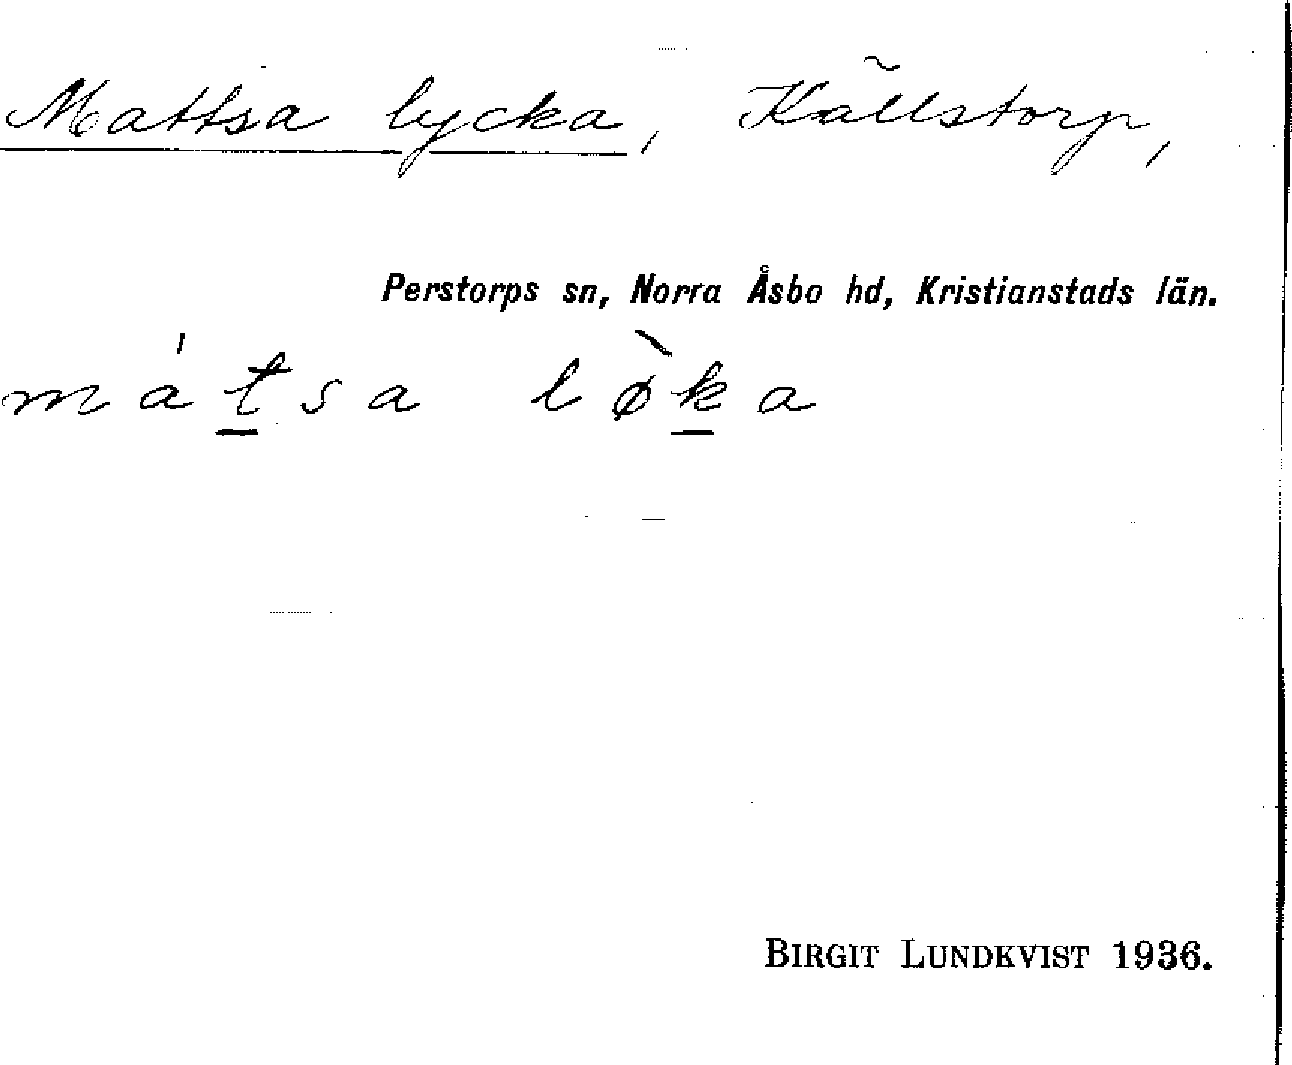 Mattsa lycka, Källstorp,
Perstorps sn, Norra Åsbo hd, Kristianstads län.
mát̲sa lø̀k̲a
BIRGIT LUNDKVIST 1936.